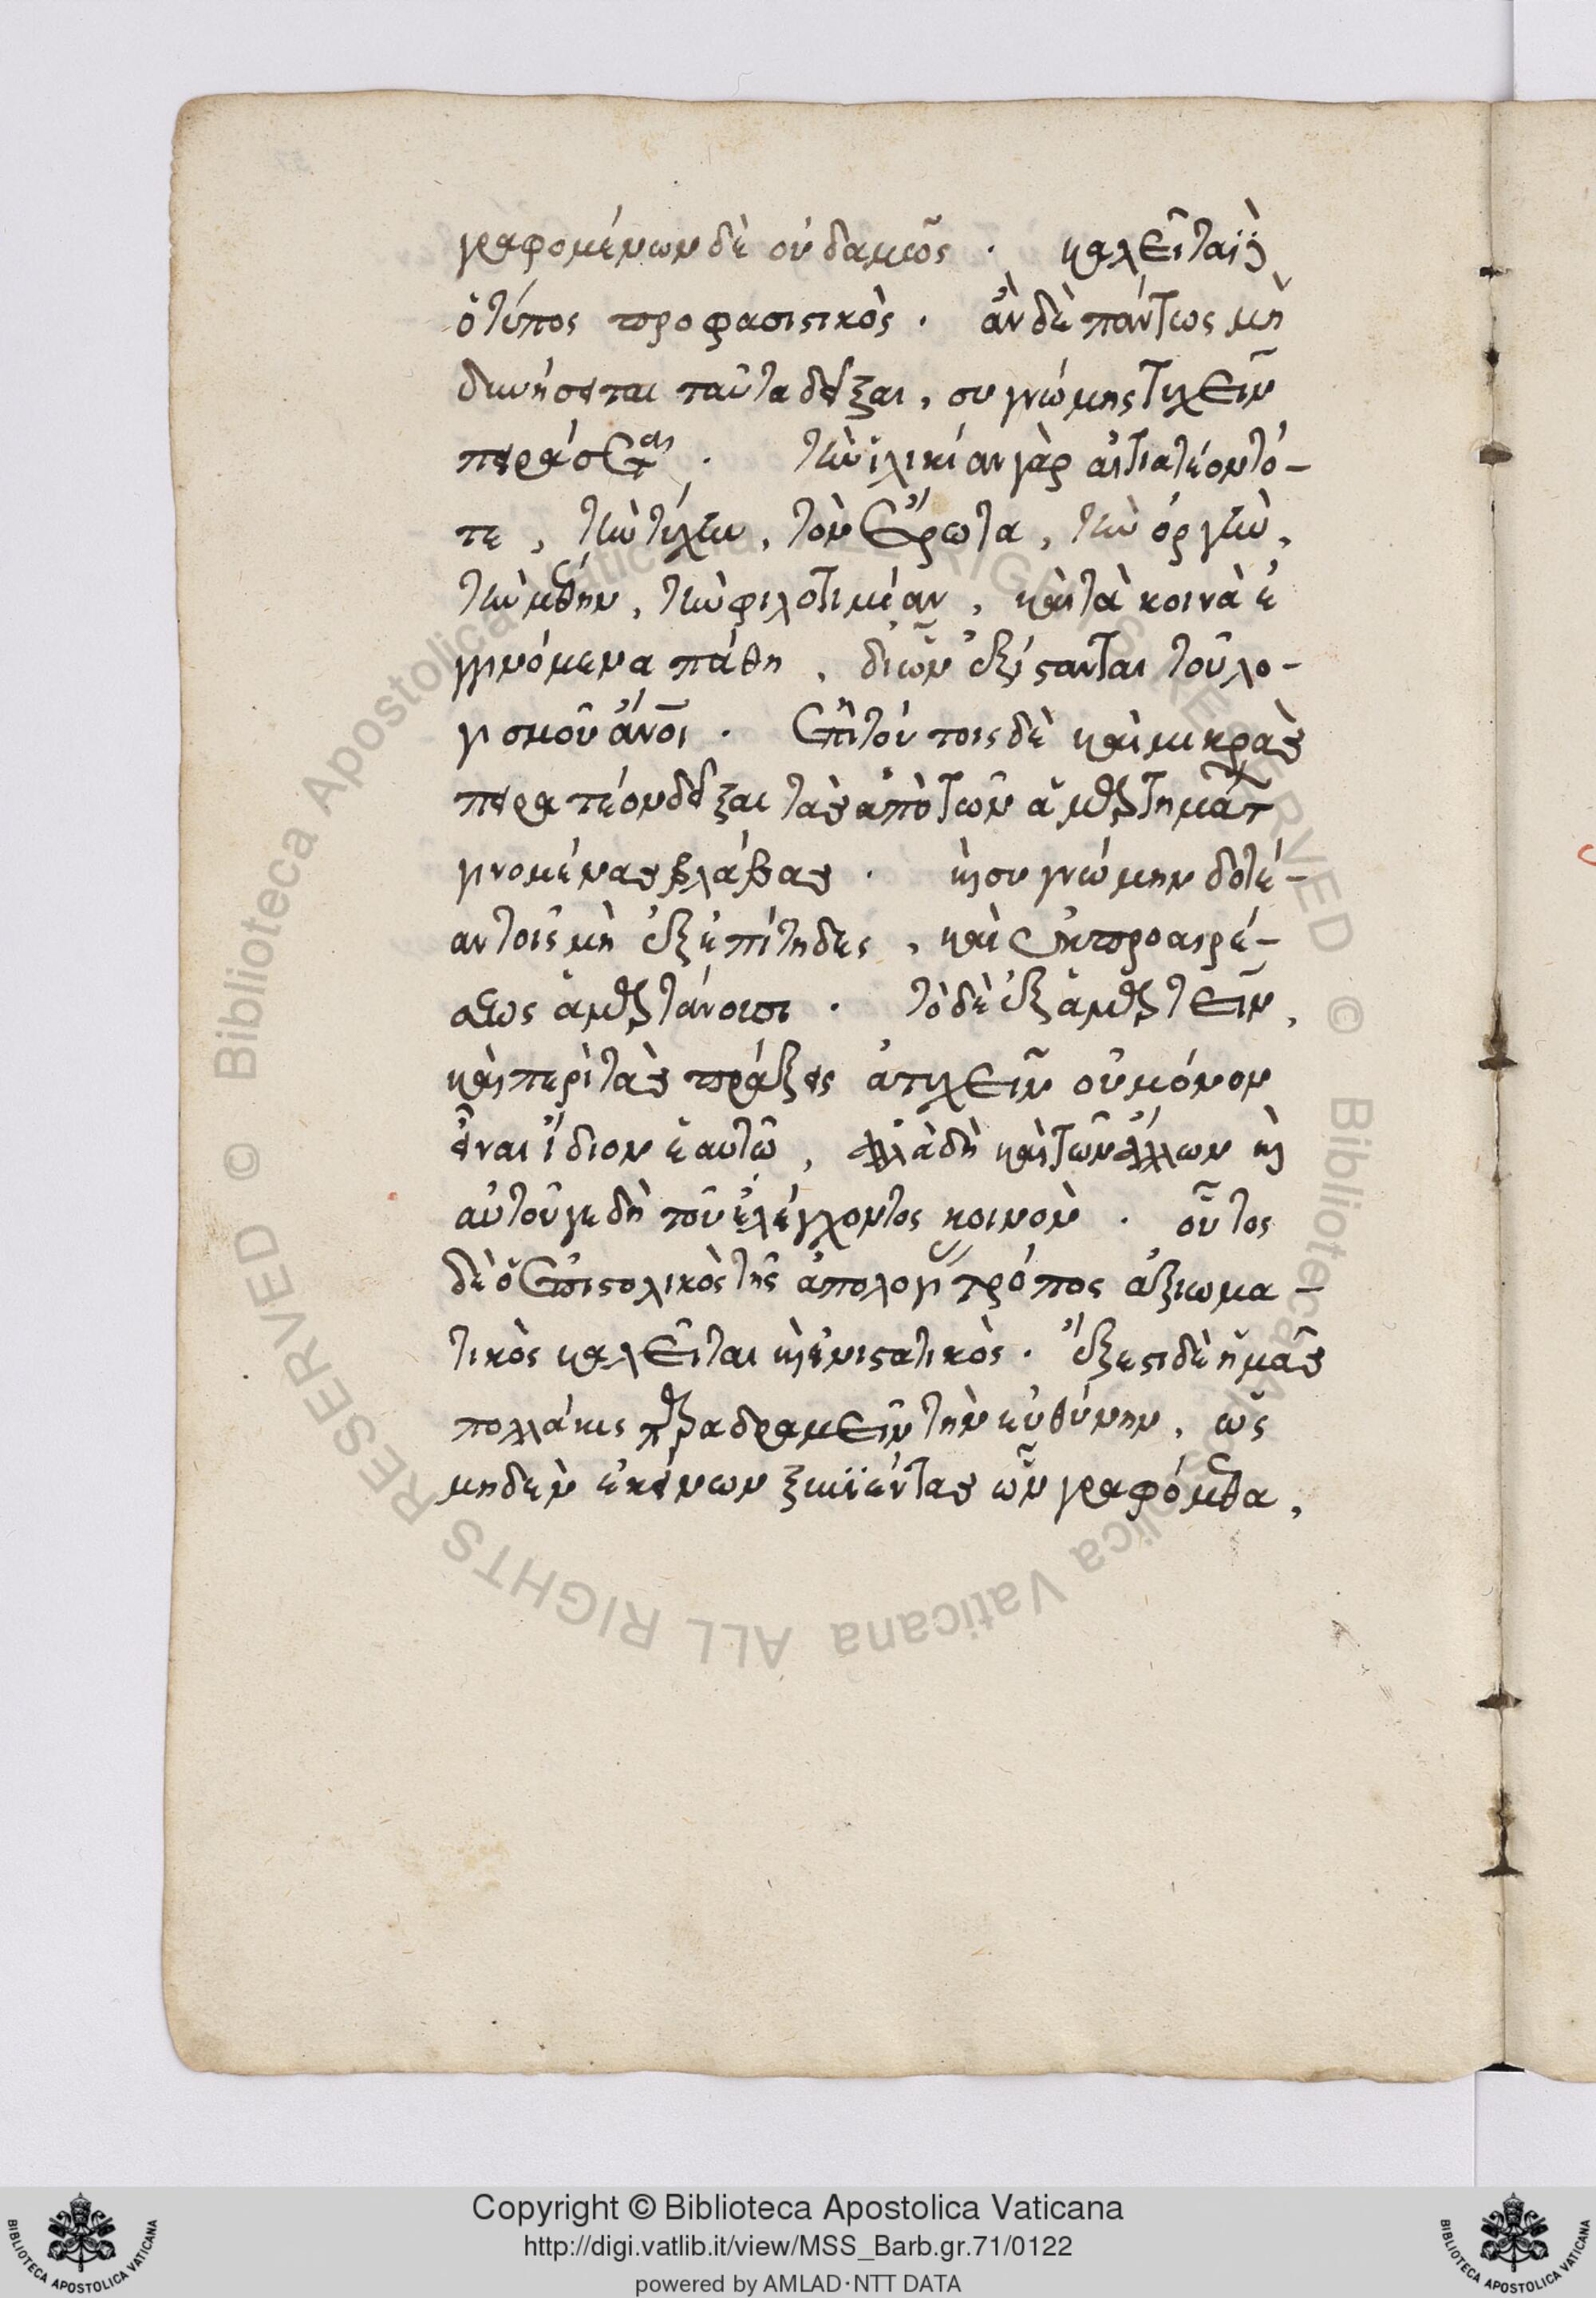 γραφομένων δὲ οὐδαμῶς · καλεῖται δὲ
ὁ τύπος προφασιστικὸς · ἂν δὲ πάντως μὴ
δυνήσεται ταῦτα δεῖξαι , συγνώμης τυχεῖν
πειράσεται · τὴν ἡλικίαν γὰρ αἰτιατέον τό-
τε , τὴν τύχην , τὸν ἔρωτα , τὴν ὀργὴν ,
τὴν μέθην , τὴν φιλοτιμίαν , καὶ τὰ κοινὰ ἐ
γινόμενα πάθη , δι ὧν ἐξίστανται τοῦ λο-
γισμοῦ ἄνοι · ἐπὶ τούτοις δὲ καὶ μικρὰς
πειρατέον δεῖξαι τὰς ἀπὸ τῶν ἁμαρτημάτ
γινομένας βλάβας · καὶ συγνώμην δοτέ-
αν τοῖς μὴ ἐξεπίτηδες , καὶ ἐκ προαιρέ-
σεως ἁμαρτάνουσι · τὸ δὲ ἐξαμαρτεῖν ,
καὶ περὶ τὰς πράξεις ἀτυχεῖν οὐ μόνον
εἶναι ἴδιον ἑαυτῶ , ἀλλὰ δὴ καὶ τῶν ἄλλων καὶ
αὐτοῦ γε δὴ τοῦ ἐλέγχοντος κοινὸν · οὗτος
δὲ ὁ ἐπιστολικὸς τῆς ἀπολογί τρόπος ἀξιωμα-
τικὸς καλεῖται καὶ ἐνιστατικὸς · ἔξεστι δὲ ἡμᾶς
πολλάκις παραδραμεῖν τὴν εὐθύνην , ὡς
μηδὲν ἐκείνων ξυνϊέντας ὧν γραφόμεθα ,
Copyright © Biblioteca Apostolica Vaticana
http://digi.vatlib.it/view/MSS_Barb.gr.71/0122
powered by AMLAD·NTT DATA